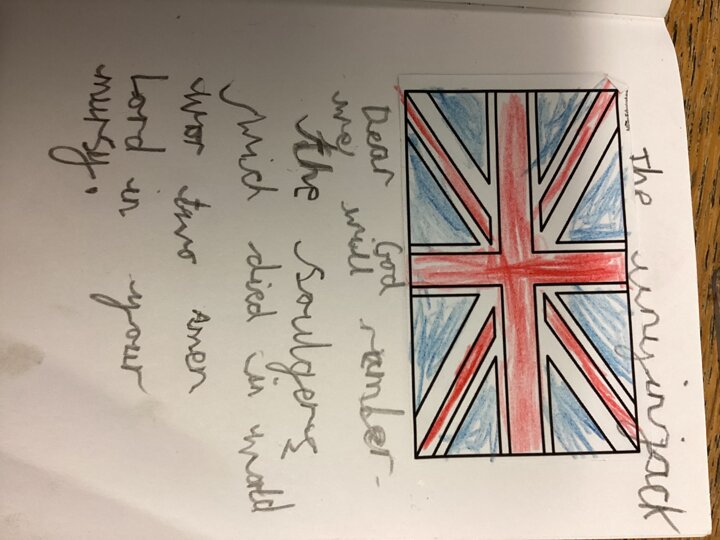 The unyinjack
Dear God
we will rember
the souldgerys
which died in world
wor two Amen
Lord in your
mursy.